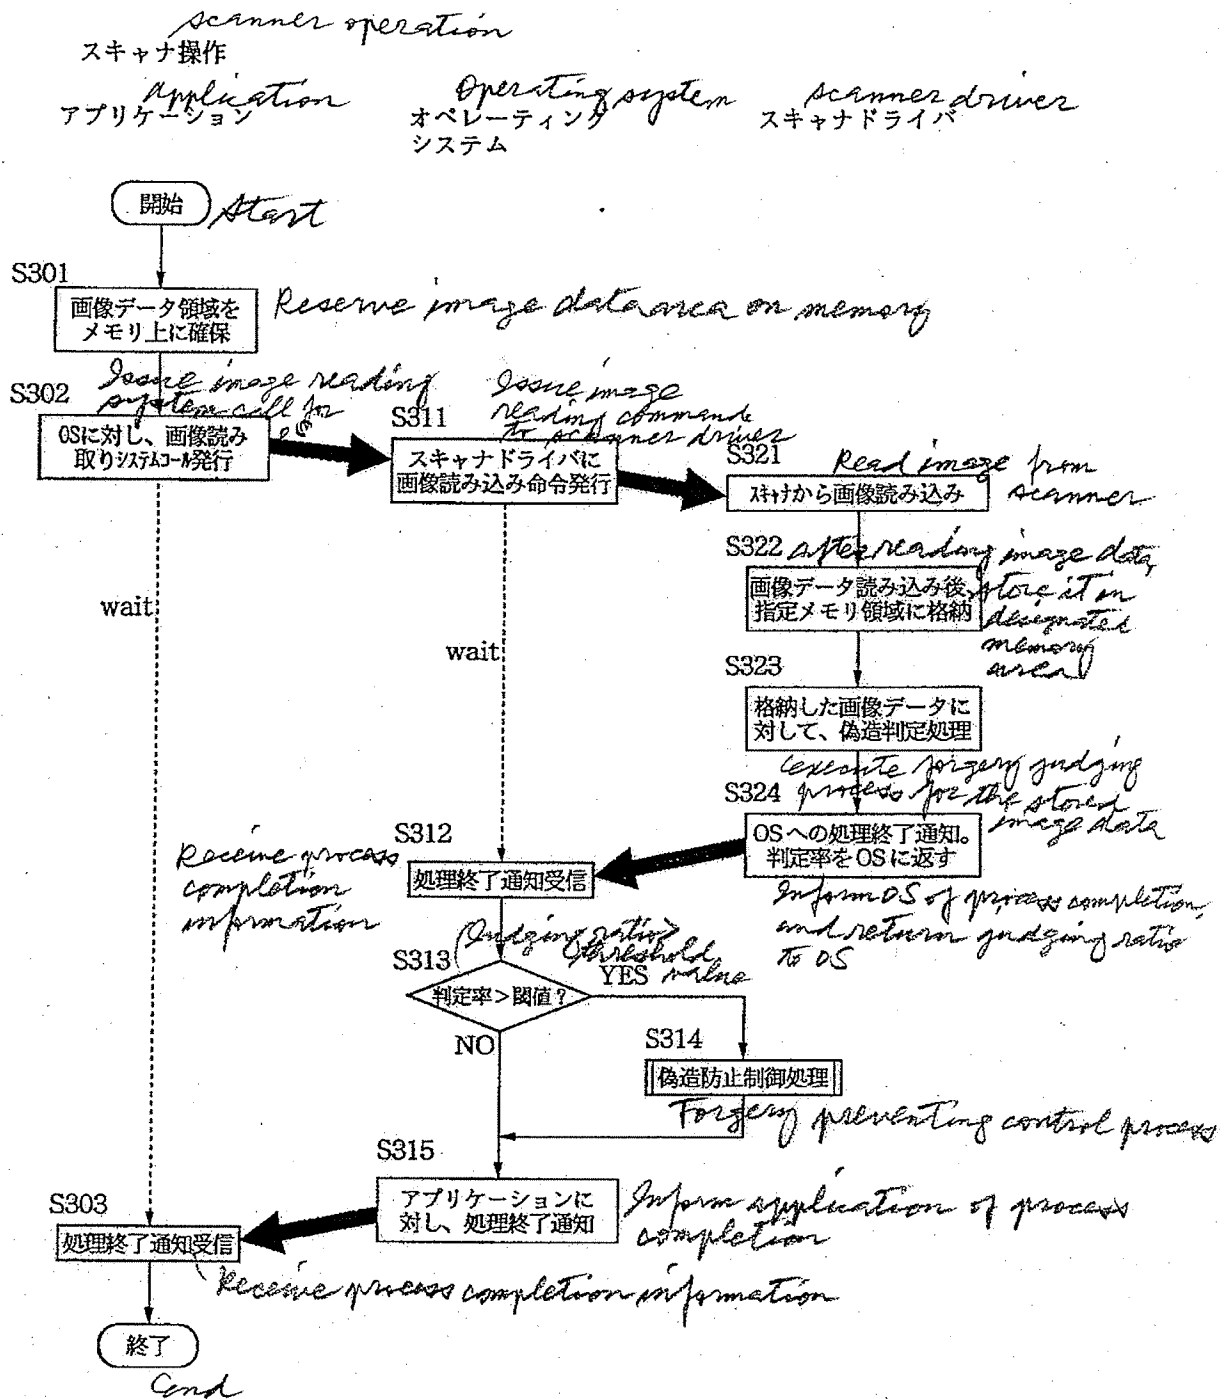 scanner operation
スキャナ操作
application
アプリケーション
Operating system
オペレーティング
システム
scanner driver
スキャナドライバ
開始
Start
S301
画像データ領域を
メモリ上に確保
Reserve image data area on memory
S302
Issue image reading
system call for
OSに対し、画像読み
取りシステムコール発行
S311
Issue image
reading command
to scanner driver
スキャナドライバに
画像読み込み命令発行
S321
Read image from
scanner
スキャナから画像読み込み
S322
After reading image data,
store it in
designated
memory
area
画像データ読み込み後
指定メモリ領域に格納
wait
wait
S323
格納した画像データに
対して、偽造判定処理
execute forgery judging
process for the stored
image data
S324
OSへの処理終了通知。
判定率をOSに返す
Inform OS of process completion,
and return judging ratio
to OS
S312
Receive process
completion
information
処理終了通知受信
S313
Judging ratio>
threshold
value
判定率>閾値?
YES
NO
S314
偽造防止制御処理
Forgery preventing control process
S315
アプリケーションに
対し、処理終了通知
Inform application of process
completion
S303
処理終了通知受信
Receive process completion information
終了
end